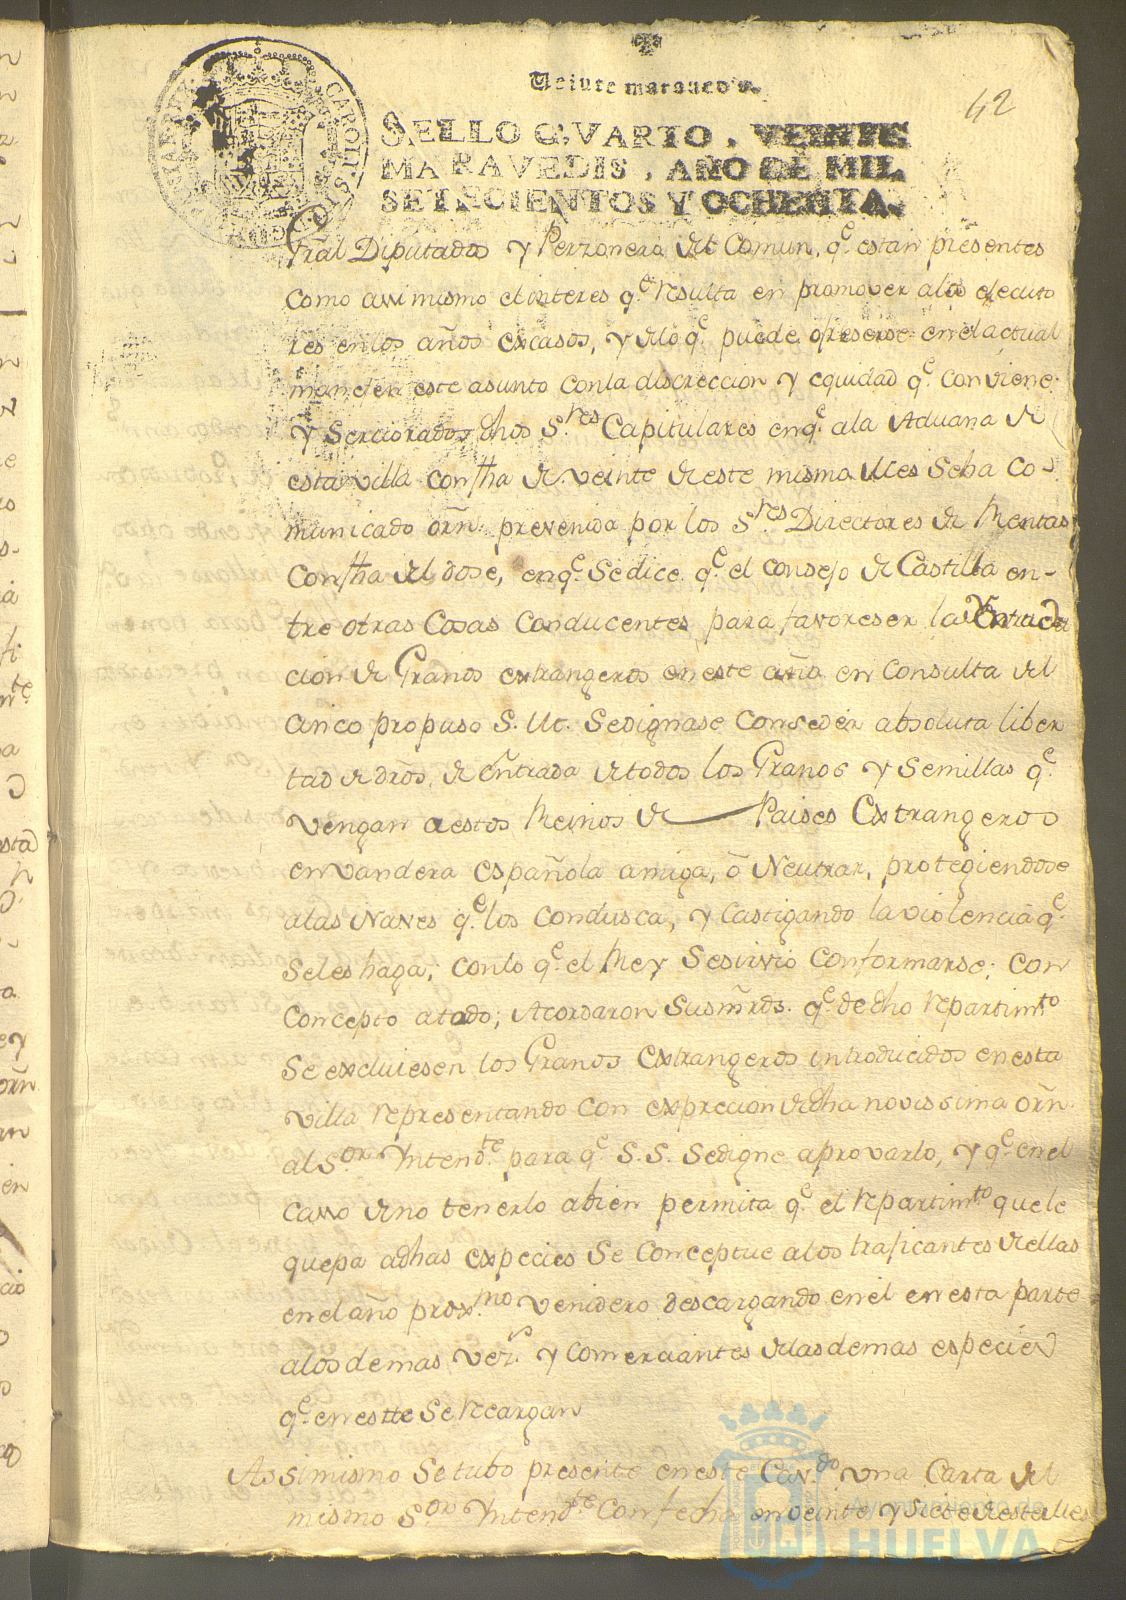 42
Veinte marauedis.
SELLO QVARTO, VEINTE
MARAVEDIS, AÑO DE MIL
SETECIENTOS Y OCHENTA.
CAROLUS
Gral Diputados y Perzonera del Comun, qe. estan presentes
como assimismo el interes qe. resulta en promover alos
res en los años excasos, y delo qe. puede ofreserse en el actual
manejen este asunto con la discreccion y equidad qe. conviene.
Y Serciorados dhos Sres Capitulares enqe. ala Aduana de
esta villa con fha de veinte de este mismo Mes Seha Co-
municado orn. prevenida por los Sres Directores de Rentas
Con fha del dose, enqe. Sedice qe. el Consejo de Castilla en-
tre otras Cosas Conducentes para favoreser la
cion de Granos extrangeros en este año en Consulta del
cinco propuso S. M. Sedignase Conseder absoluta liber
tad de dros. de entrada de todos los Granos y Semillas qe.
vengan a estos Reinos de Paises Extrangeros
en vandera española amiga, ò Neutrar, protegiendose
alas Naves qe. los Condusca, y Castigando la violencia qe.
Seles haga, con lo qe. el Rey Sesirvio Conformarse; con
Concepto atodo; Acordaron Susmrds. qe. de dho repartimto
Se excluiesen los Granos Extrangeros introducidos en esta
villa representando con exprecion de dha novissima orn.
al Sor. Yntendte. para qe. S.S. Sedigne aprovarlo, y qe. en el
casso de no tenerlo abien permita qe. el repartimto que le
quepa adhas expecies Se Conceptue alos traficantes de ellas
en el año proxmo. venidero descargando en el en esta parte
alos demas vezs. y comerciantes de las demas especies
qe. en este Se recargan
Assimismo Setubo presente en este Cavdo una Carta del
mismo Sor. Yntendte. Con fecha en veinte y siete de este Mes
Ayuntamiento de
HUELVA